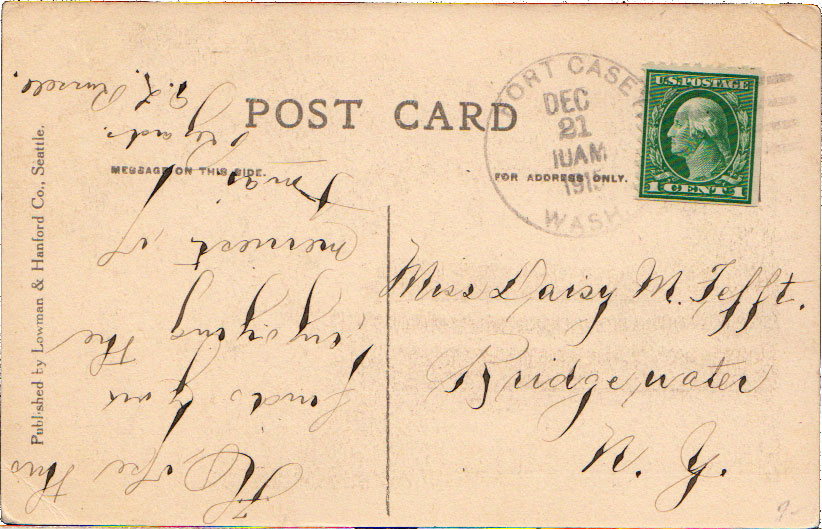 POST CARD
MESSAGE ON THIS SIDE.
FOR ADDRESS ONLY.
FORT CASEY
DEC
21
10AM
WASH.
U.S. POSTAGE
1 CENT 1
Miss Daisy M. Tefft.
Bridgewater
N. Y.
Hope this
finds you
enjoying the
merriest of
Xmas
regards.
Russell.
Published by Lowman & Hanford Co., Seattle.